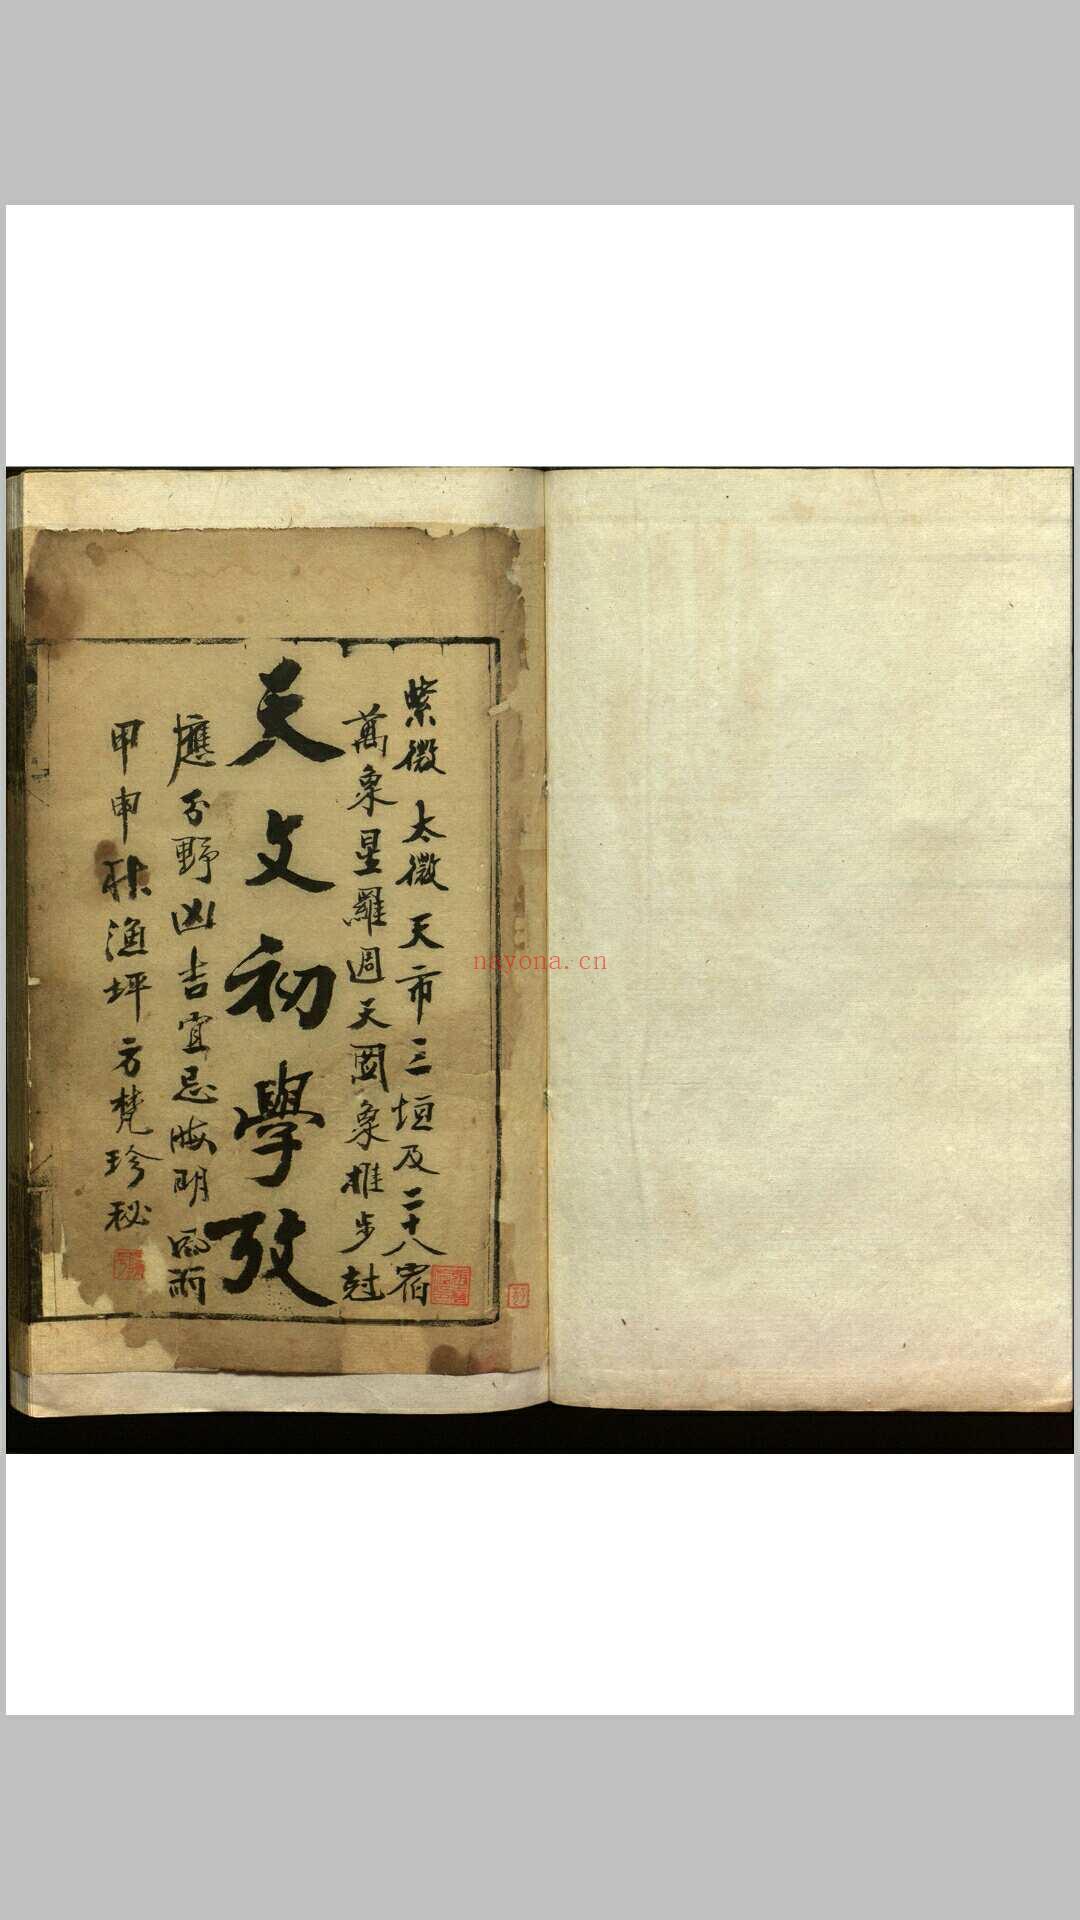 紫微太微天市三垣及二十八宿
萬象星羅週天圖象推步尅
天文初學攷
應分野凶吉宜忌晦明風雨
甲申秋漁坪方梵珍秘
nayona.cn